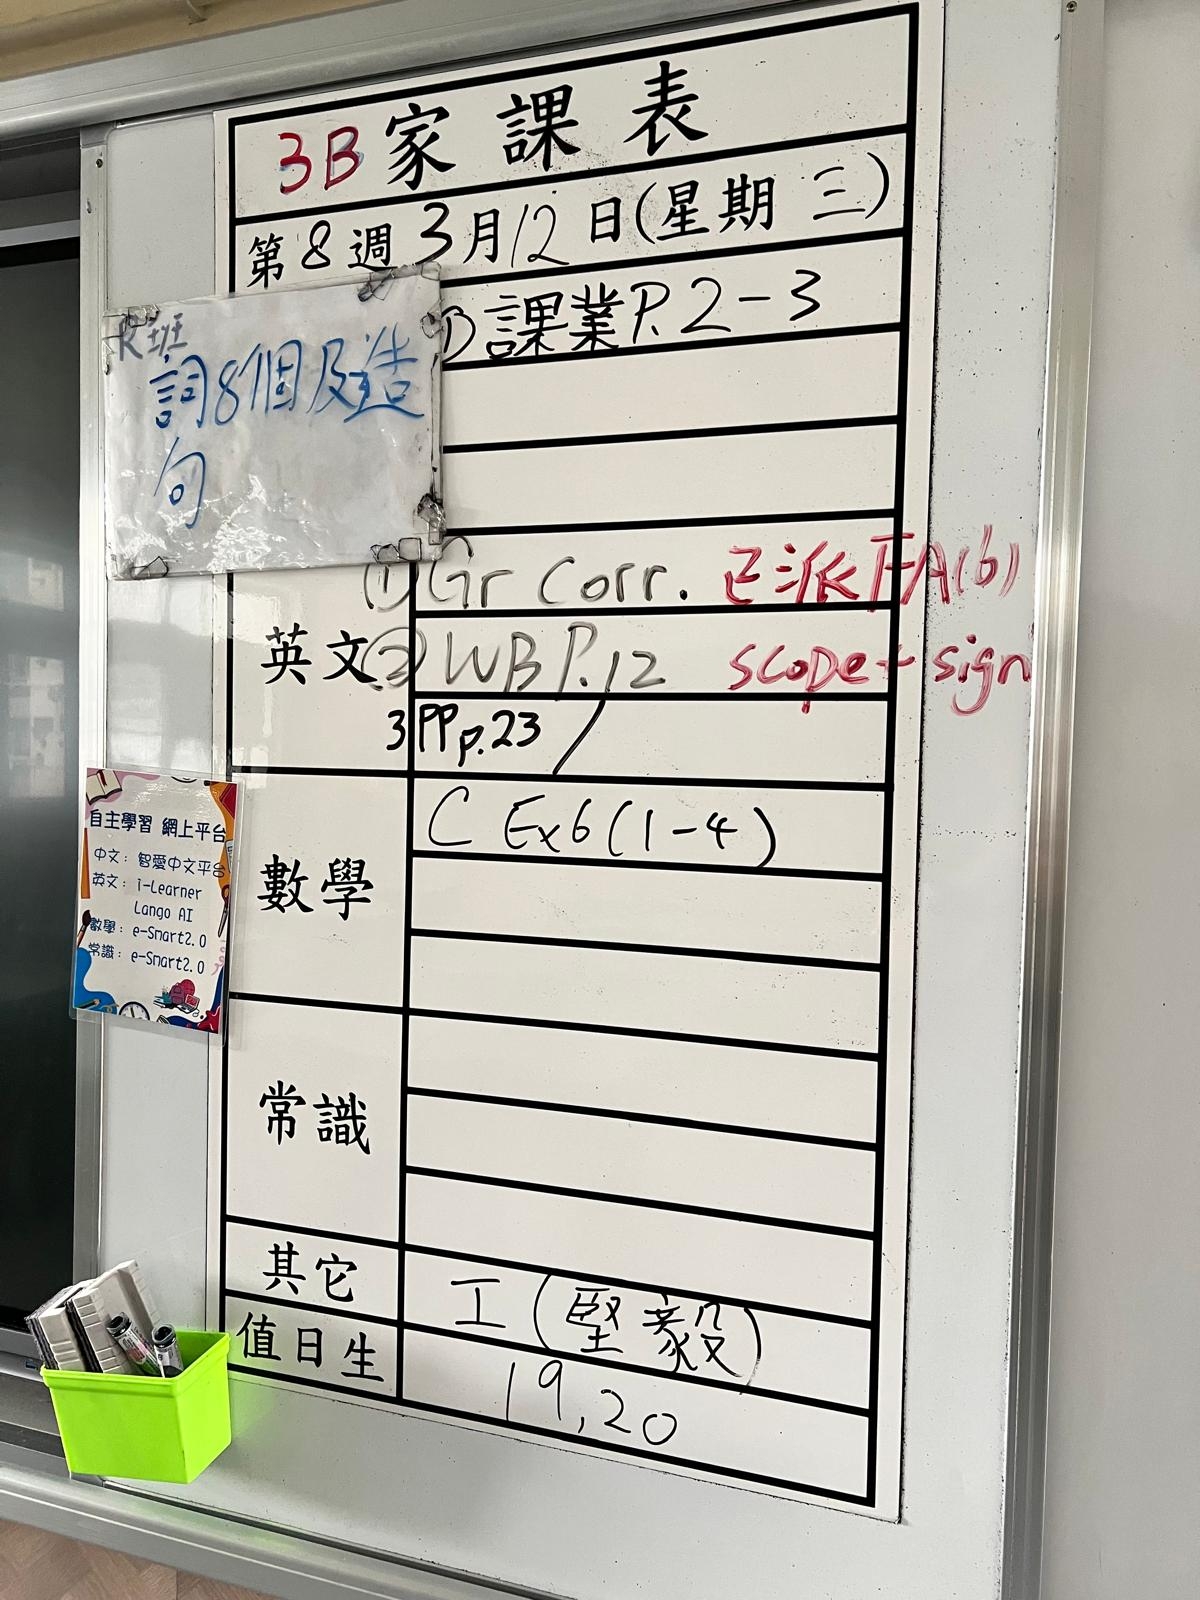 3B家課表
第8週3月12日(星期三)
① 課業P.2-3
R班
詞8個及造
句
英文
① Gr Corr. 已派FA(6)
② WB P.12 scope + sign
3 PP p.23 /
數學
C Ex6(1-4)
常識
其它
工(堅毅)
值日生
19,20
自主學習 網上平台
中文: 智愛中文平台
英文: i-Learner
Lango AI
數學: e-Smart2.0
常識: e-Smart2.0